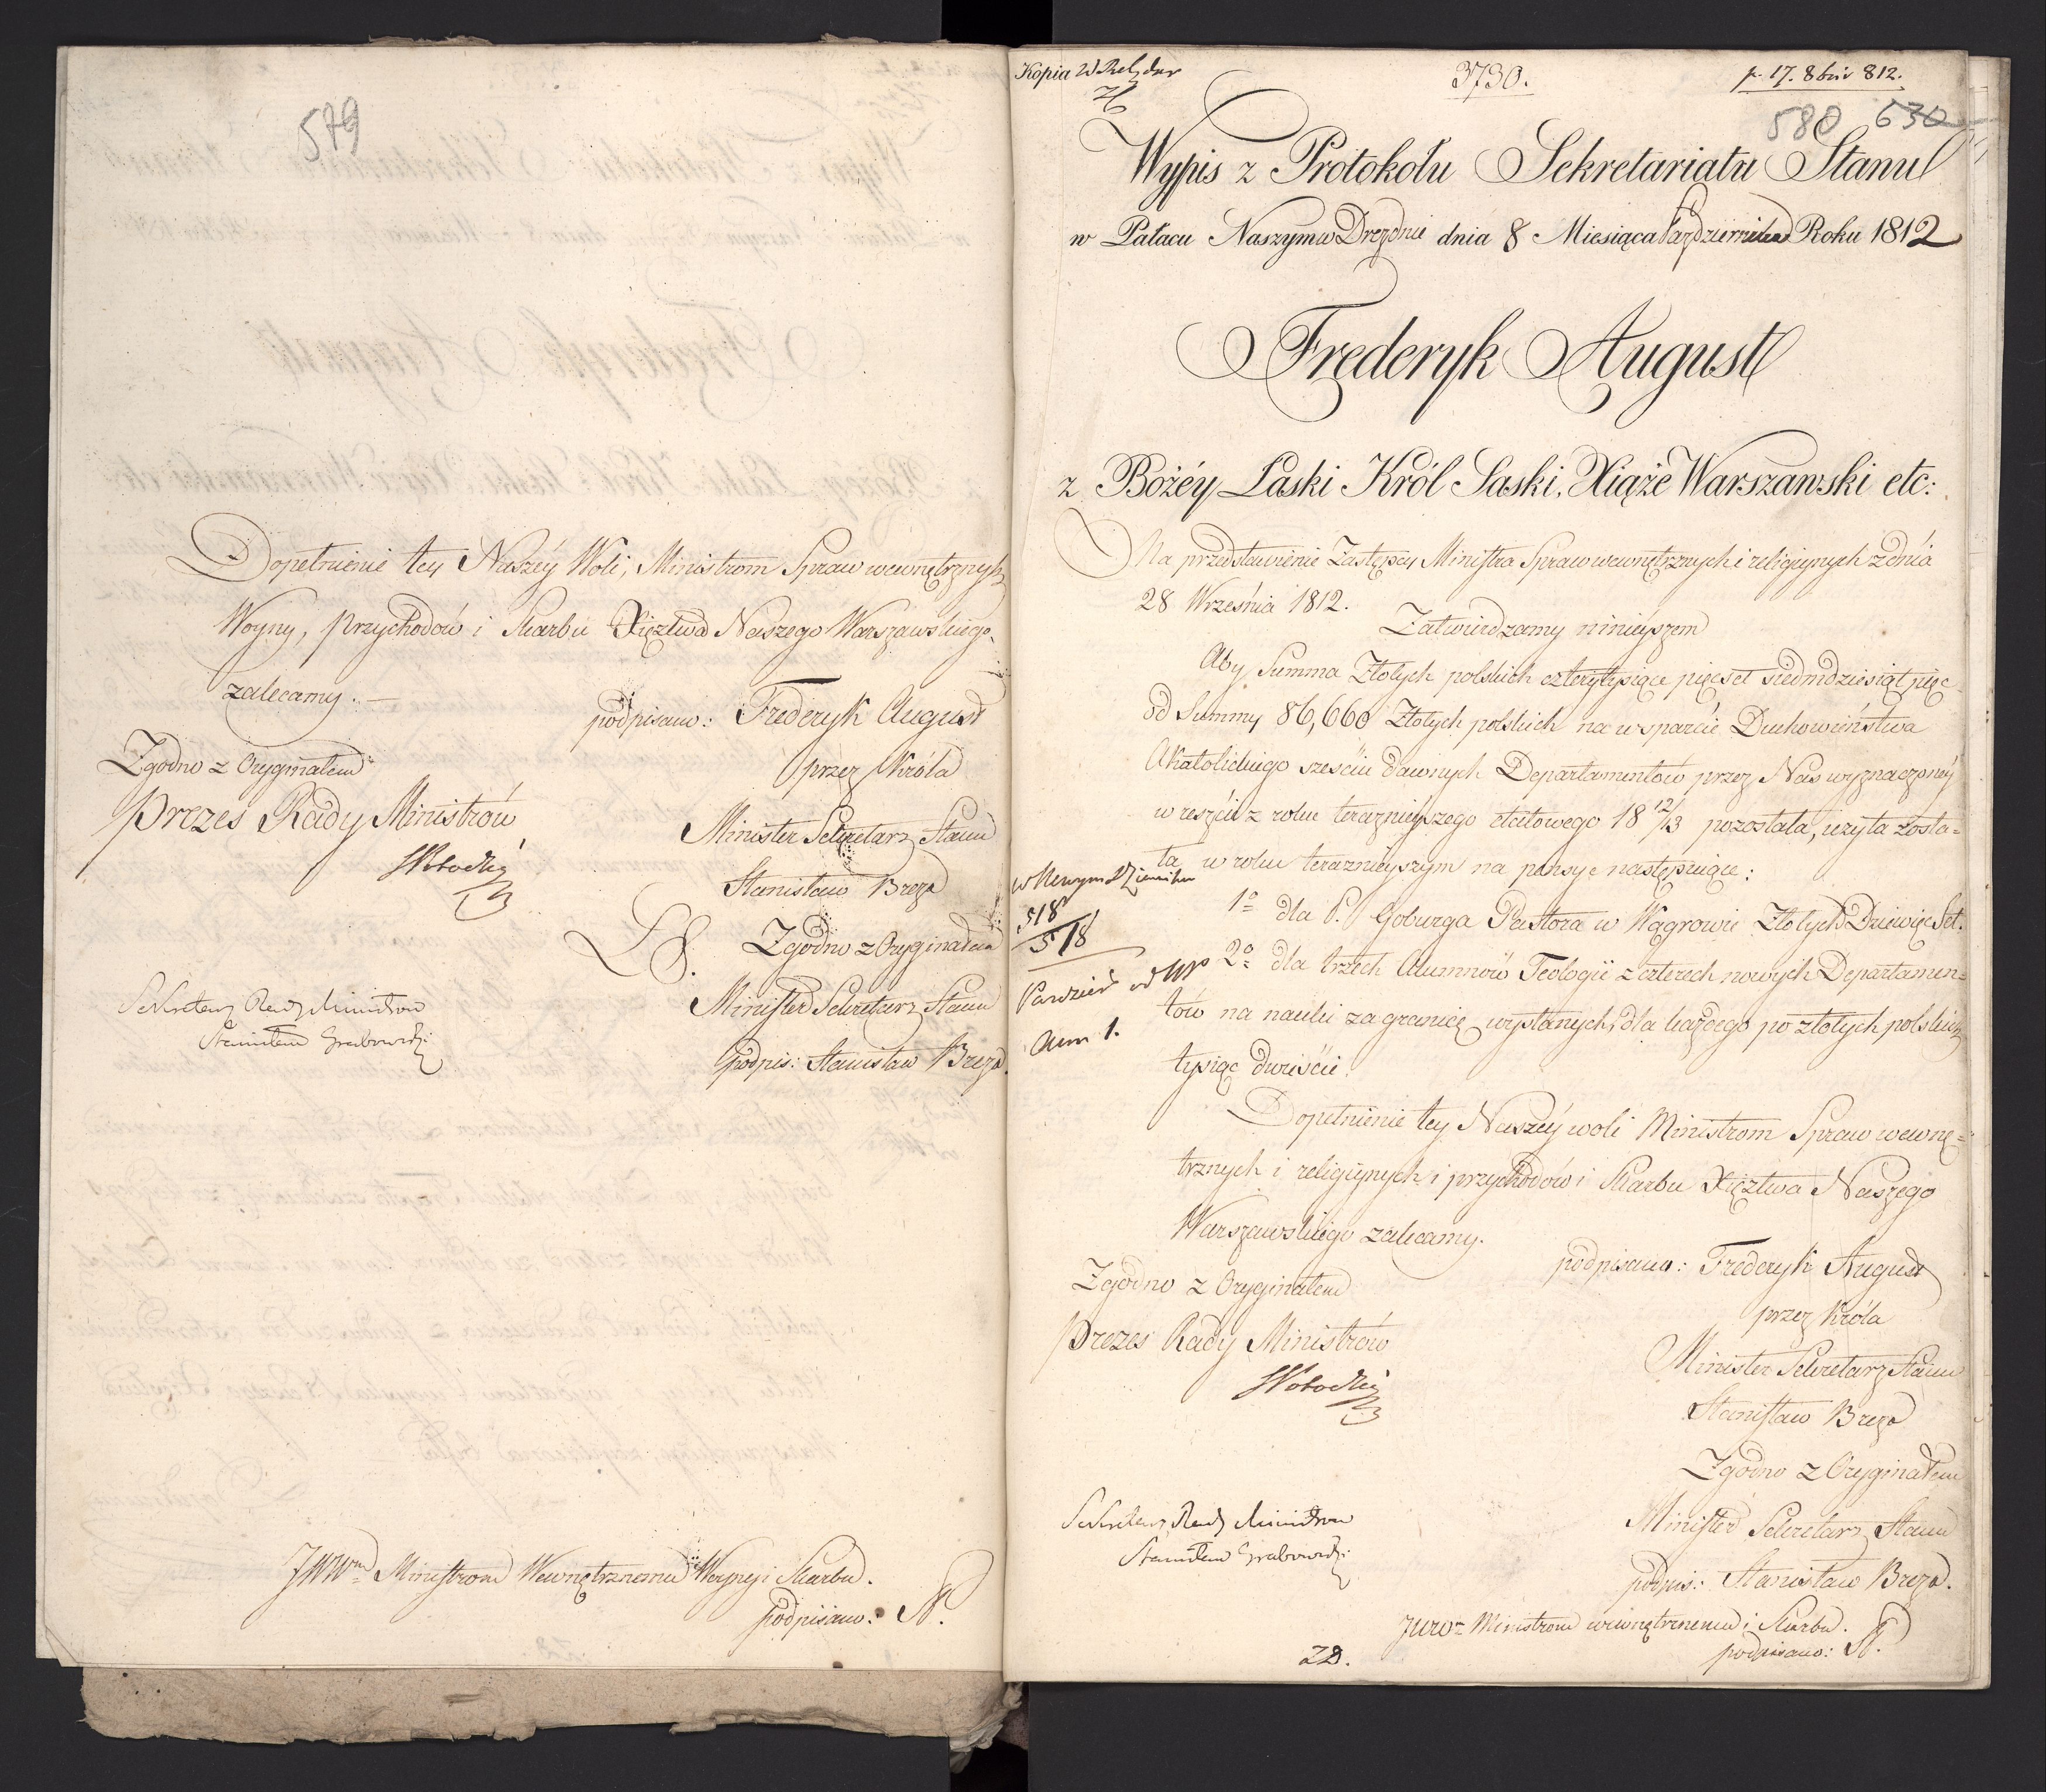 579
Dopełnienie tey Naszéy Woli, Ministrom Spraw wewnętrznych,
Woyny, przychodów i Skarbu Xięztwa Naszego Warszawskiego
zalecamy. —
podpisano: Frederyk August
przez Króla
Minister Sekretarz Stanu
Stanisław Breza
LS. Zgodno z Oryginałem
Minister Sekretarz Stanu
podpis: Stanisław Breza.
Zgodno z Oryginałem
Prezes Rady Ministrów
Sekretarz Rady Ministrów
Stanisław Grabowski
JWWm Ministrom Wewnętrznemu Woyny i Skarbu.
podpisano:
Kopia
3730.
p. 17. 8bris 812.
580 630
Wypis z Protokołu Sekretariatu Stanu
w Pałacu Naszym w Dreźnie dnia 8 Miesiąca Października Roku 1812
Frederyk August
z Bożéy Łaski Król Saski, Xiąże Warszawski etc:
Na przedstawienie Zastępcy Ministra Spraw wewnętrznych i religijnych z dnia
28 Września 1812.
Zatwierdzamy ninieyszem
Aby Summa Złotych polskich czterytysiące pięcset siedmdziesiąt pięc
od Summy 86,660 Złotych polskich na wsparcie Duchowieństwa
Akatolickiego sześciu dawnych Departamentów przez Nas wyznaczonéy
w reszcie z roku teraznieyszego etatowego 18 12/13 pozostała, użyta zosta=
ła w roku teraznieyszym na pensye następuiące:
1o dla P. Goburga Pastora w Wągrowie Złotych Dziewięc Set.
2o dla trzech Alumnów Teologii z czterech nowych Departamen=
tów na nauki zagranicę wysłanych, dla każdego po złotych polskich
tysiąc dwieście.
518
518
Dopełnienie tey Naszéy woli Ministrom Spraw wewnę=
trznych i religijnych i przychodów i Skarbu Xięztwa Naszego
Warszawskiego zalecamy.
podpisano: Frederyk August
przez Króla
Minister Sekretarz Stanu
Stanisław Breza
Zgodno z Oryginałem
Minister Sekretarz Stanu
podpis: Stanisław Breza.
Zgodno z Oryginałem
Prezes Rady Ministrów
Sekretarz Rady Ministrów
Stanisław Grabowski
Ministrom wewnętrznemu i Skarbu.
podpisano: